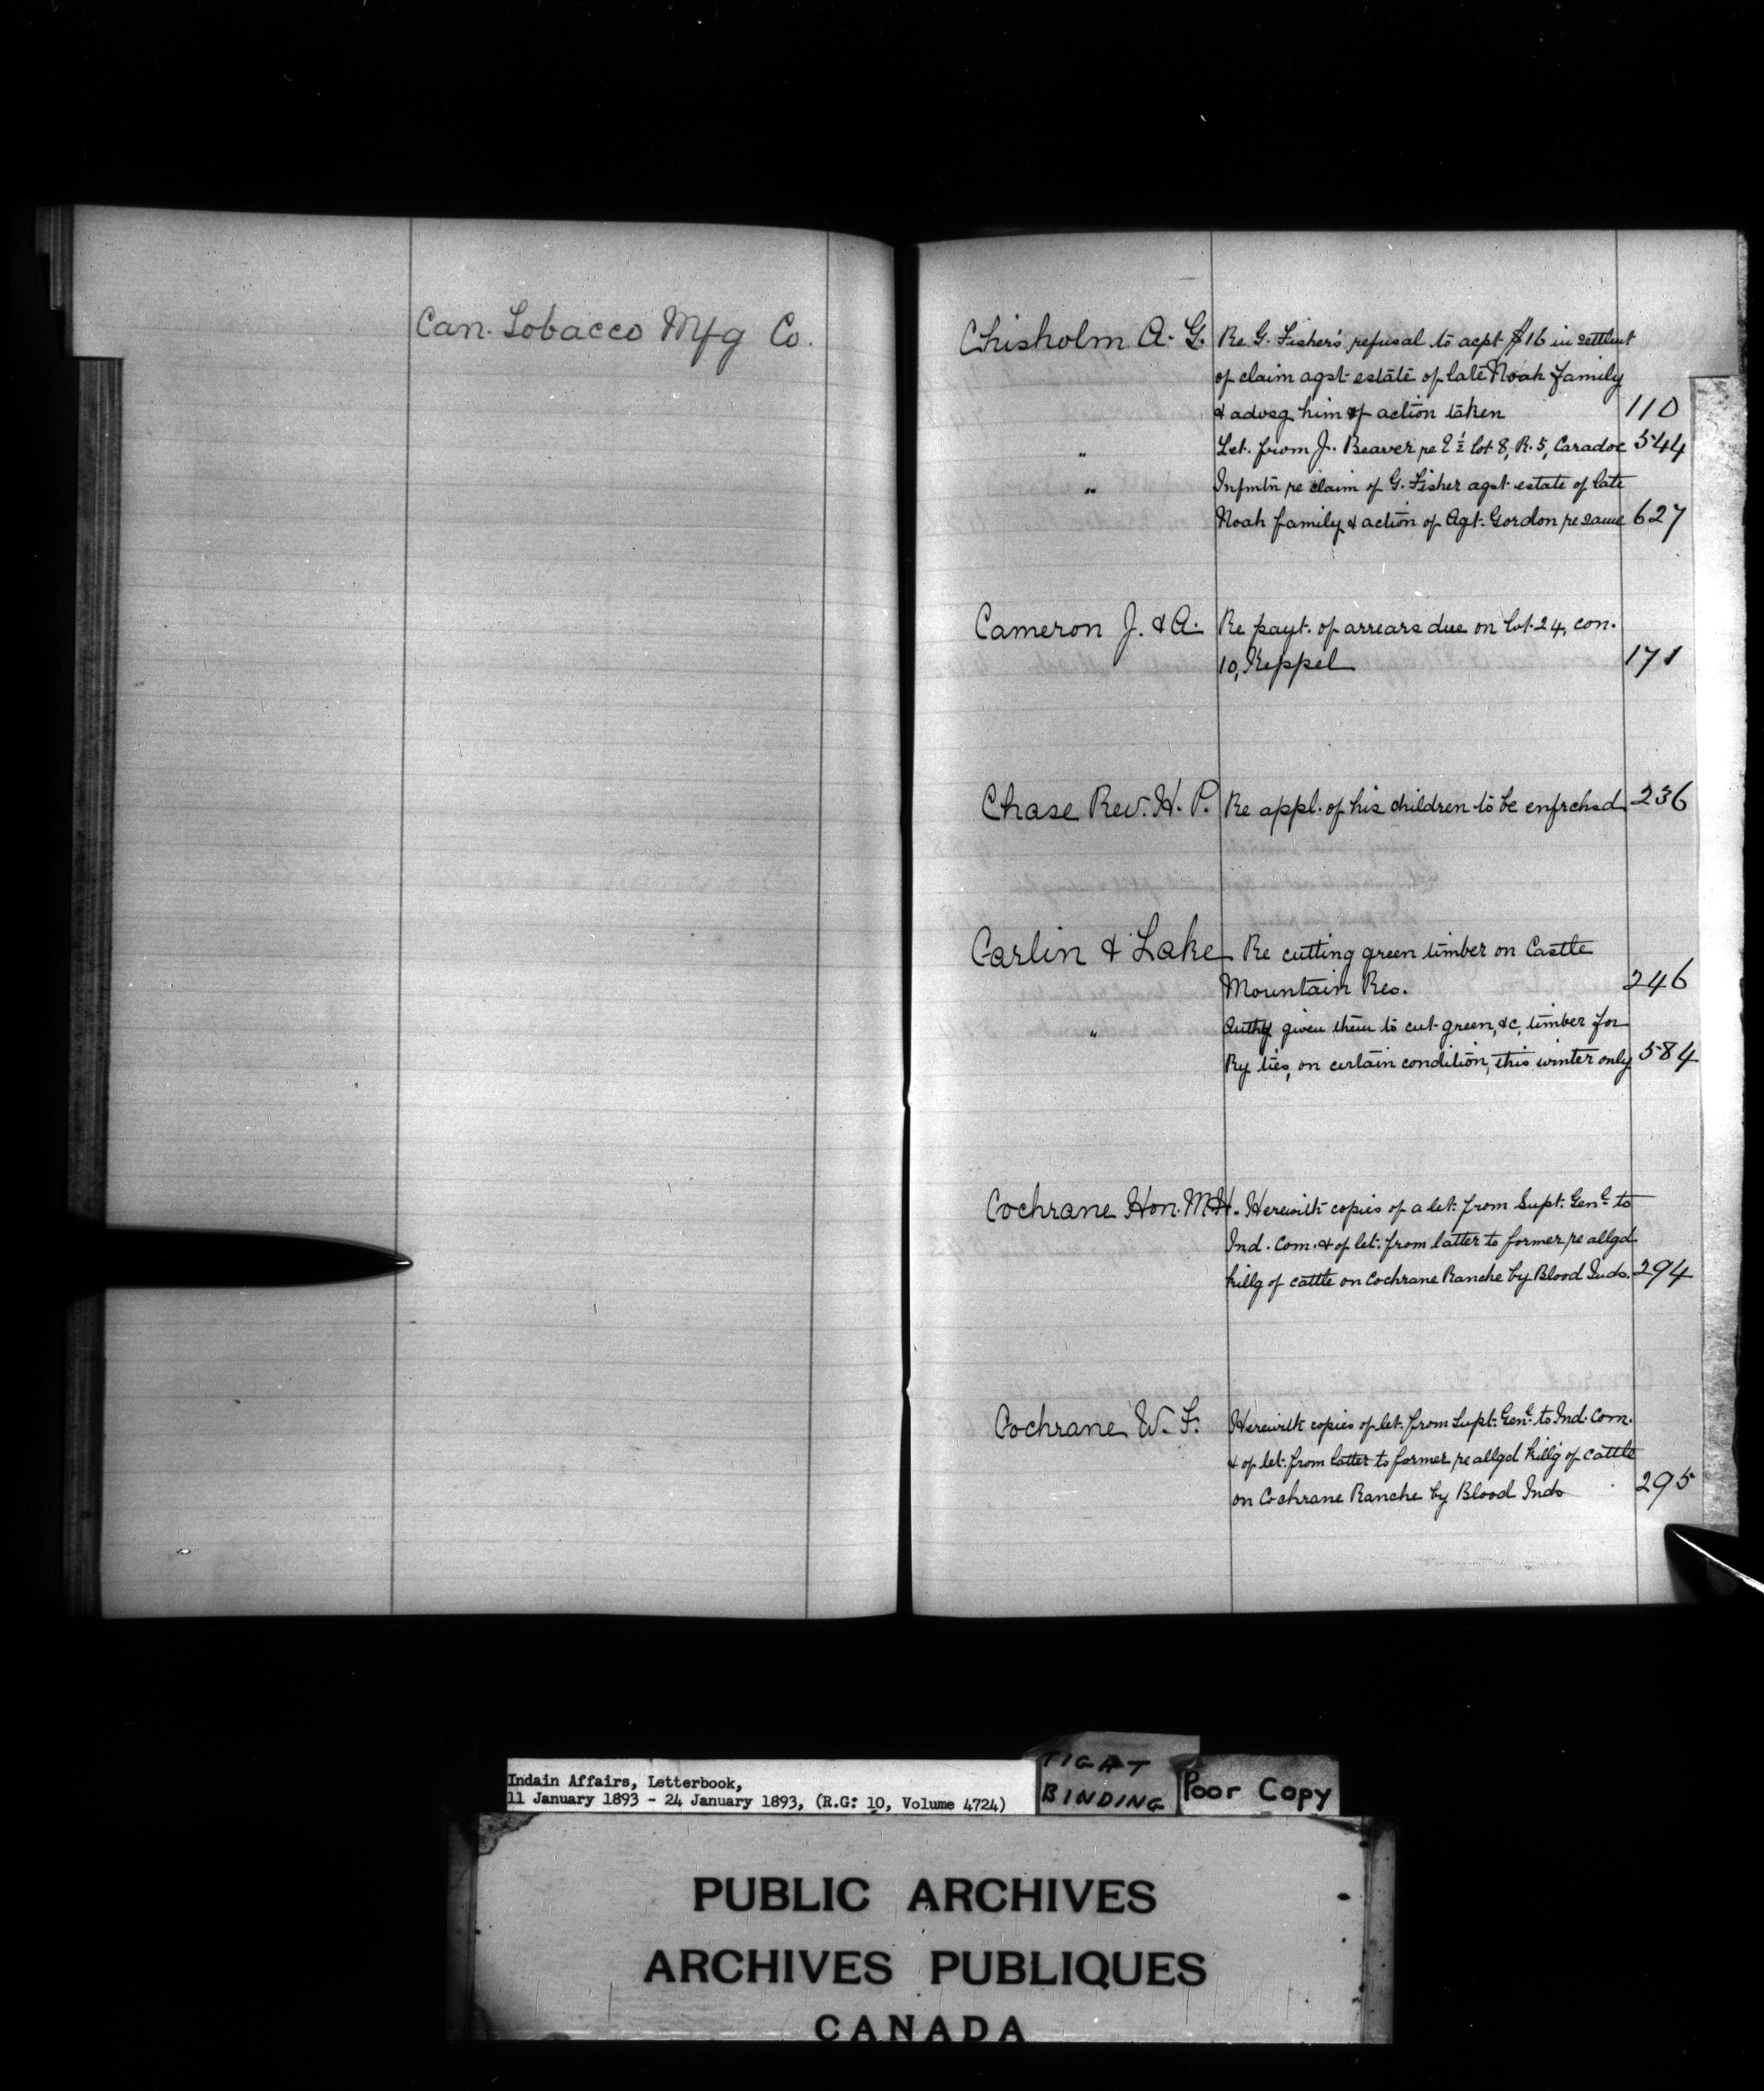 Can. Tobacco Mfg Co.
Chisholm A. G. Re G. Fisher's refusal to acpt $16 in settlmt
of claim agst estate of late Noah family
& advsg him of action taken 110
" Let. from J. Beaver re E ½ lot 8, R. 5, Caradoc 544
" Infmtn re claim of G. Fisher agst estate of late
Noah family & action of Agt. Gordon re same 627
Cameron J. & A. Re payt. of arrears due on lot 24, con.
10, Keppel 171
Chase Rev. H. P. Re appl. of his children to be enfrchsd 236
Carlin & Lake Re cutting green timber on Castle
Mountain Res. 246
" Authy given them to cut green, &c, timber for
Ry ties, on certain condition, this winter only 584
Cochrane Hon. M.H. Herewith copies of a let. from Supt. Genl to
Ind. Com. & of let. from latter to former re allgd
killg of cattle on Cochrane Ranche by Blood Inds. 294
Cochrane W. F. Herewith copies of let. from Supt. Genl to Ind. Com.
& of let. from latter to former re allgd killg of cattle
on Cochrane Ranche by Blood Inds 295
Indain Affairs, Letterbook,
11 January 1893 - 24 January 1893, (R.G: 10, Volume 4724)
TIGHT
BINDING
Poor Copy
PUBLIC ARCHIVES
ARCHIVES PUBLIQUES
CANADA